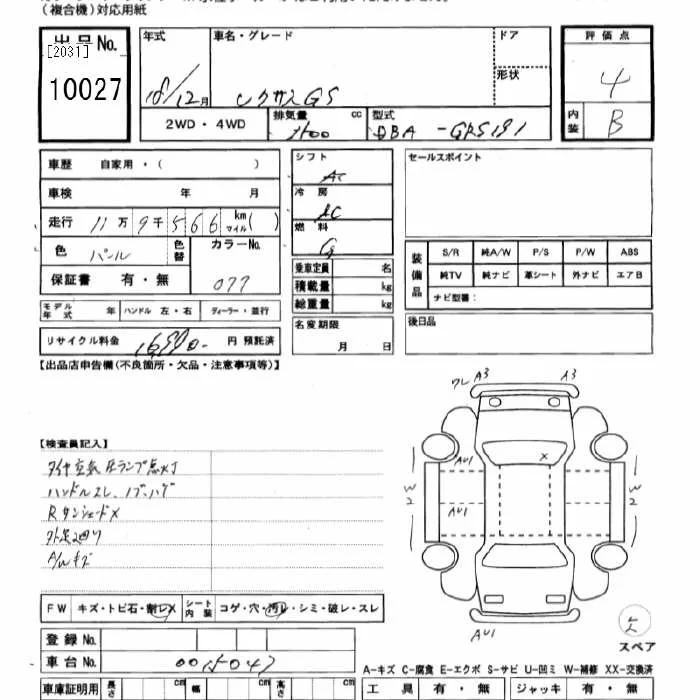 (複合機)対応用紙
出品No.
[2031]
10027
年式
18/12月
車名・グレード
レクサスGS
ドア
形状
評価点
4
内装
B
2WD・4WD
排気量
cc
型式
DBA -GRS191
車歴 自家用・( )
車検 年 月
走行 11万9千566 km マイル( )
色
パール
色替
カラーNo.
077
保証書 有・無
モデル年式 年
ハンドル 左・右
ディーラー・並行
リサイクル料金
円 預託済
シフト
AT
冷房
AC
燃料
G
乗車定員 名
積載量 kg
総重量 kg
名変期限
月 日
セールスポイント
装備品
S/R 純A/W P/S P/W ABS
純TV 純ナビ 革シート 外ナビ エアB
ナビ型番:
後日品
【出品店申告欄(不良箇所・欠品・注意事項等)】
【検査員記入】
タイヤ空気圧ランプ点灯
ハンドルスレ、ノブハゲ
RサンシェードX
外足廻り
A/Wキズ
ワレ A3
A3
AU1
X
W2
W2
AU1
AU1
スペア
FW キズ・トビ石・割レX
シート内装 コゲ・穴・汚レ・シミ・破レ・スレ
登録No.
車台No.
0015047
車庫証明用 長さ cm 幅 cm 高さ cm
A-キズ C-腐食 E-エクボ S-サビ U-凹ミ W-補修 XX-交換済
工具 有・無 ジャッキ 有・無